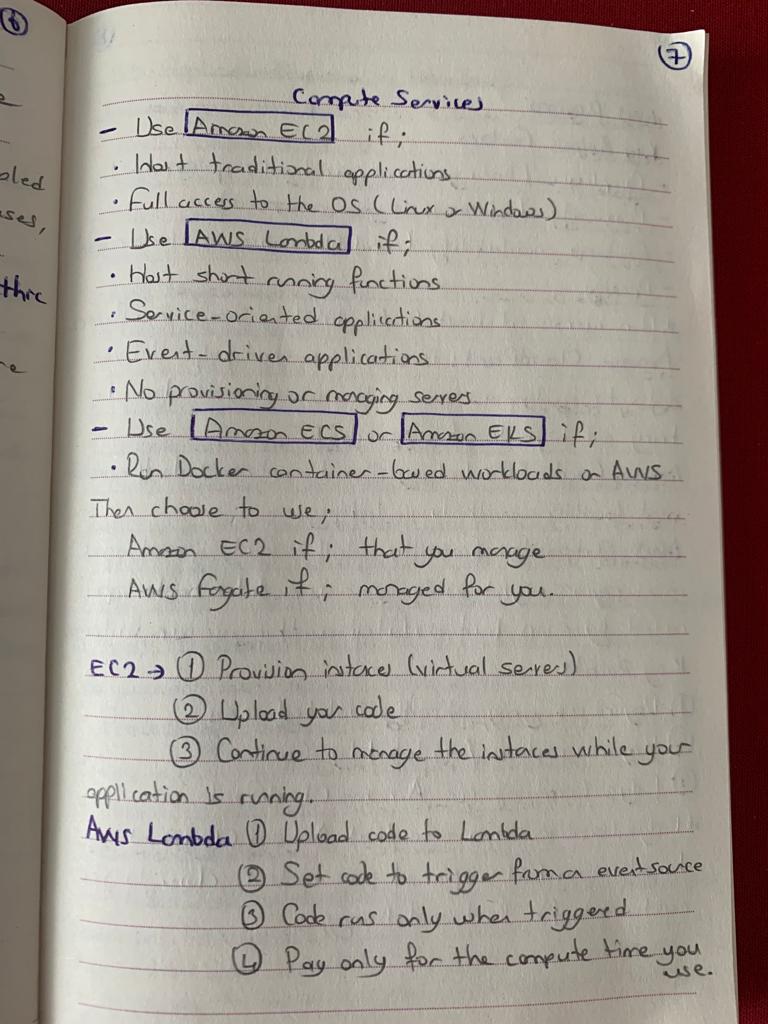 6
pled
ses,
thre
7
Compute Services
- Use Amazon EC2 if;
· Host traditional applications
· Full access to the OS (Linux or Windows)
- Use AWS Lambda if;
· Host short running functions
· Service-oriented applications
· Event-driven applications
· No provisioning or managing servers
- Use Amazon ECS or Amazon EKS if;
· Run Docker container-based workloads on AWS
Then choose to use;
Amazon EC2 if; that you manage
AWS Fargate if; managed for you.
EC2 → ① Provision instaces (virtual servers)
② Upload your code
③ Continue to manage the instaces while your
application is running.
AWS Lambda ① Upload code to Lambda
② Set code to trigger from a event source
③ Code runs only when triggered
④ Pay only for the compute time you
use.